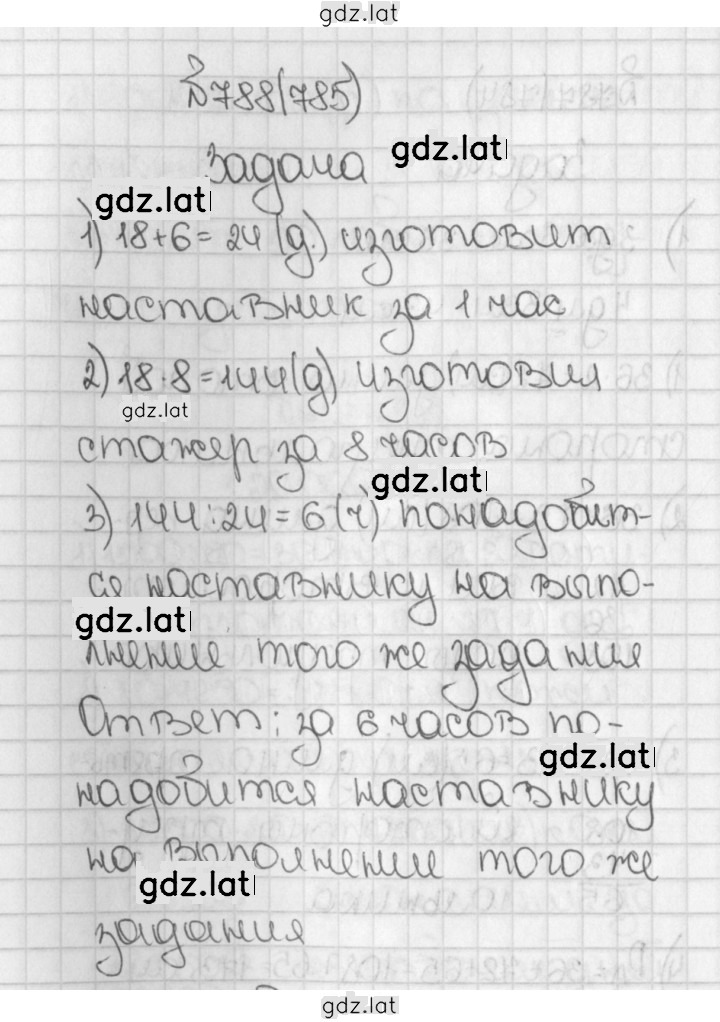 gdz.lat
№788(785)
Задача
gdz.lat
gdz.lat
1) 18+6=24(д.) изготовит
наставник за 1 час
2) 18·8=144(д) изготовил
gdz.lat
стажер за 8 часов
gdz.lat
3) 144:24=6(ч) понадобит-
ся наставнику на выпо-
gdz.lat
лнении того же задания
Ответ: за 6 часов по-
gdz.lat
надобится наставнику
на выполнении того же
gdz.lat
задания
gdz.lat